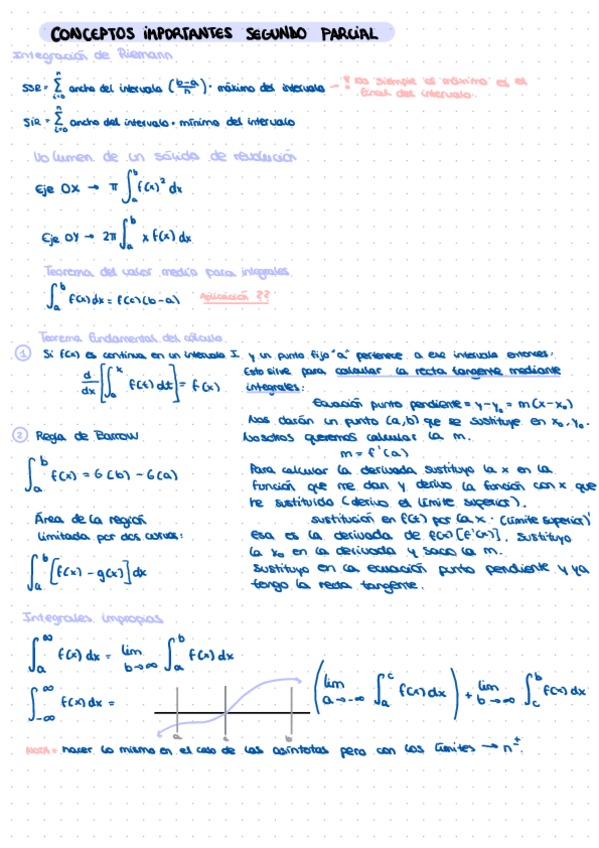 CONCEPTOS IMPORTANTES SEGUNDO PARCIAL
Integración de Riemann
SSR = ∑_{i=0}^{n} ancho del intervalo ((b-a)/n) · máximo del intervalo → ! no siempre el máximo es el
final del intervalo.
SIR = ∑_{i=0}^{n} ancho del intervalo · mínimo del intervalo
Volumen de un sólido de revolución
Eje OX → π ∫_a^b f(x)² dx
Eje OY → 2π ∫_a^b x f(x) dx
Teorema del valor medio para integrales
∫_a^b f(x) dx = f(c)(b-a) Aplicación ??
Teorema fundamental del cálculo
① Si f(x) es continua en un intervalo I y un punto fijo "a" pertenece a ese intervalo entonces:
d/dx [∫_a^x f(t) dt] = f(x)
Esto sirve para calcular la recta tangente mediante
integrales:
Ecuación punto pendiente = y-y₀ = m(x-x₀)
Nos darán un punto (a,b) que se sustituye en x₀, y₀.
Nosotros queremos calcular la m.
m = f'(a)
Para calcular la derivada sustituyo la x en la
función que me dan y derivo la función con x que
he sustituido (derivo el límite superior).
sustitución en f(t) por la x · (límite superior)'
Esa es la derivada de f(x) [f'(x)]. Sustituyo
la x₀ en la derivada y saco la m.
Sustituyo en la ecuación punto pendiente y ya
tengo la recta tangente.
② Regla de Barrow
∫_a^b f(x) = G(b) - G(a)
Área de la región
limitada por dos curvas:
∫_a^b [f(x) - g(x)] dx
Integrales impropias
∫_a^∞ f(x) dx = lim_{b→∞} ∫_a^b f(x) dx
∫_{-∞}^∞ f(x) dx = (lim_{a→-∞} ∫_a^c f(x) dx) + lim_{b→∞} ∫_c^b f(x) dx
a c b
NOTA = hacer lo mismo en el caso de las asíntotas pero con los límites → n^±.